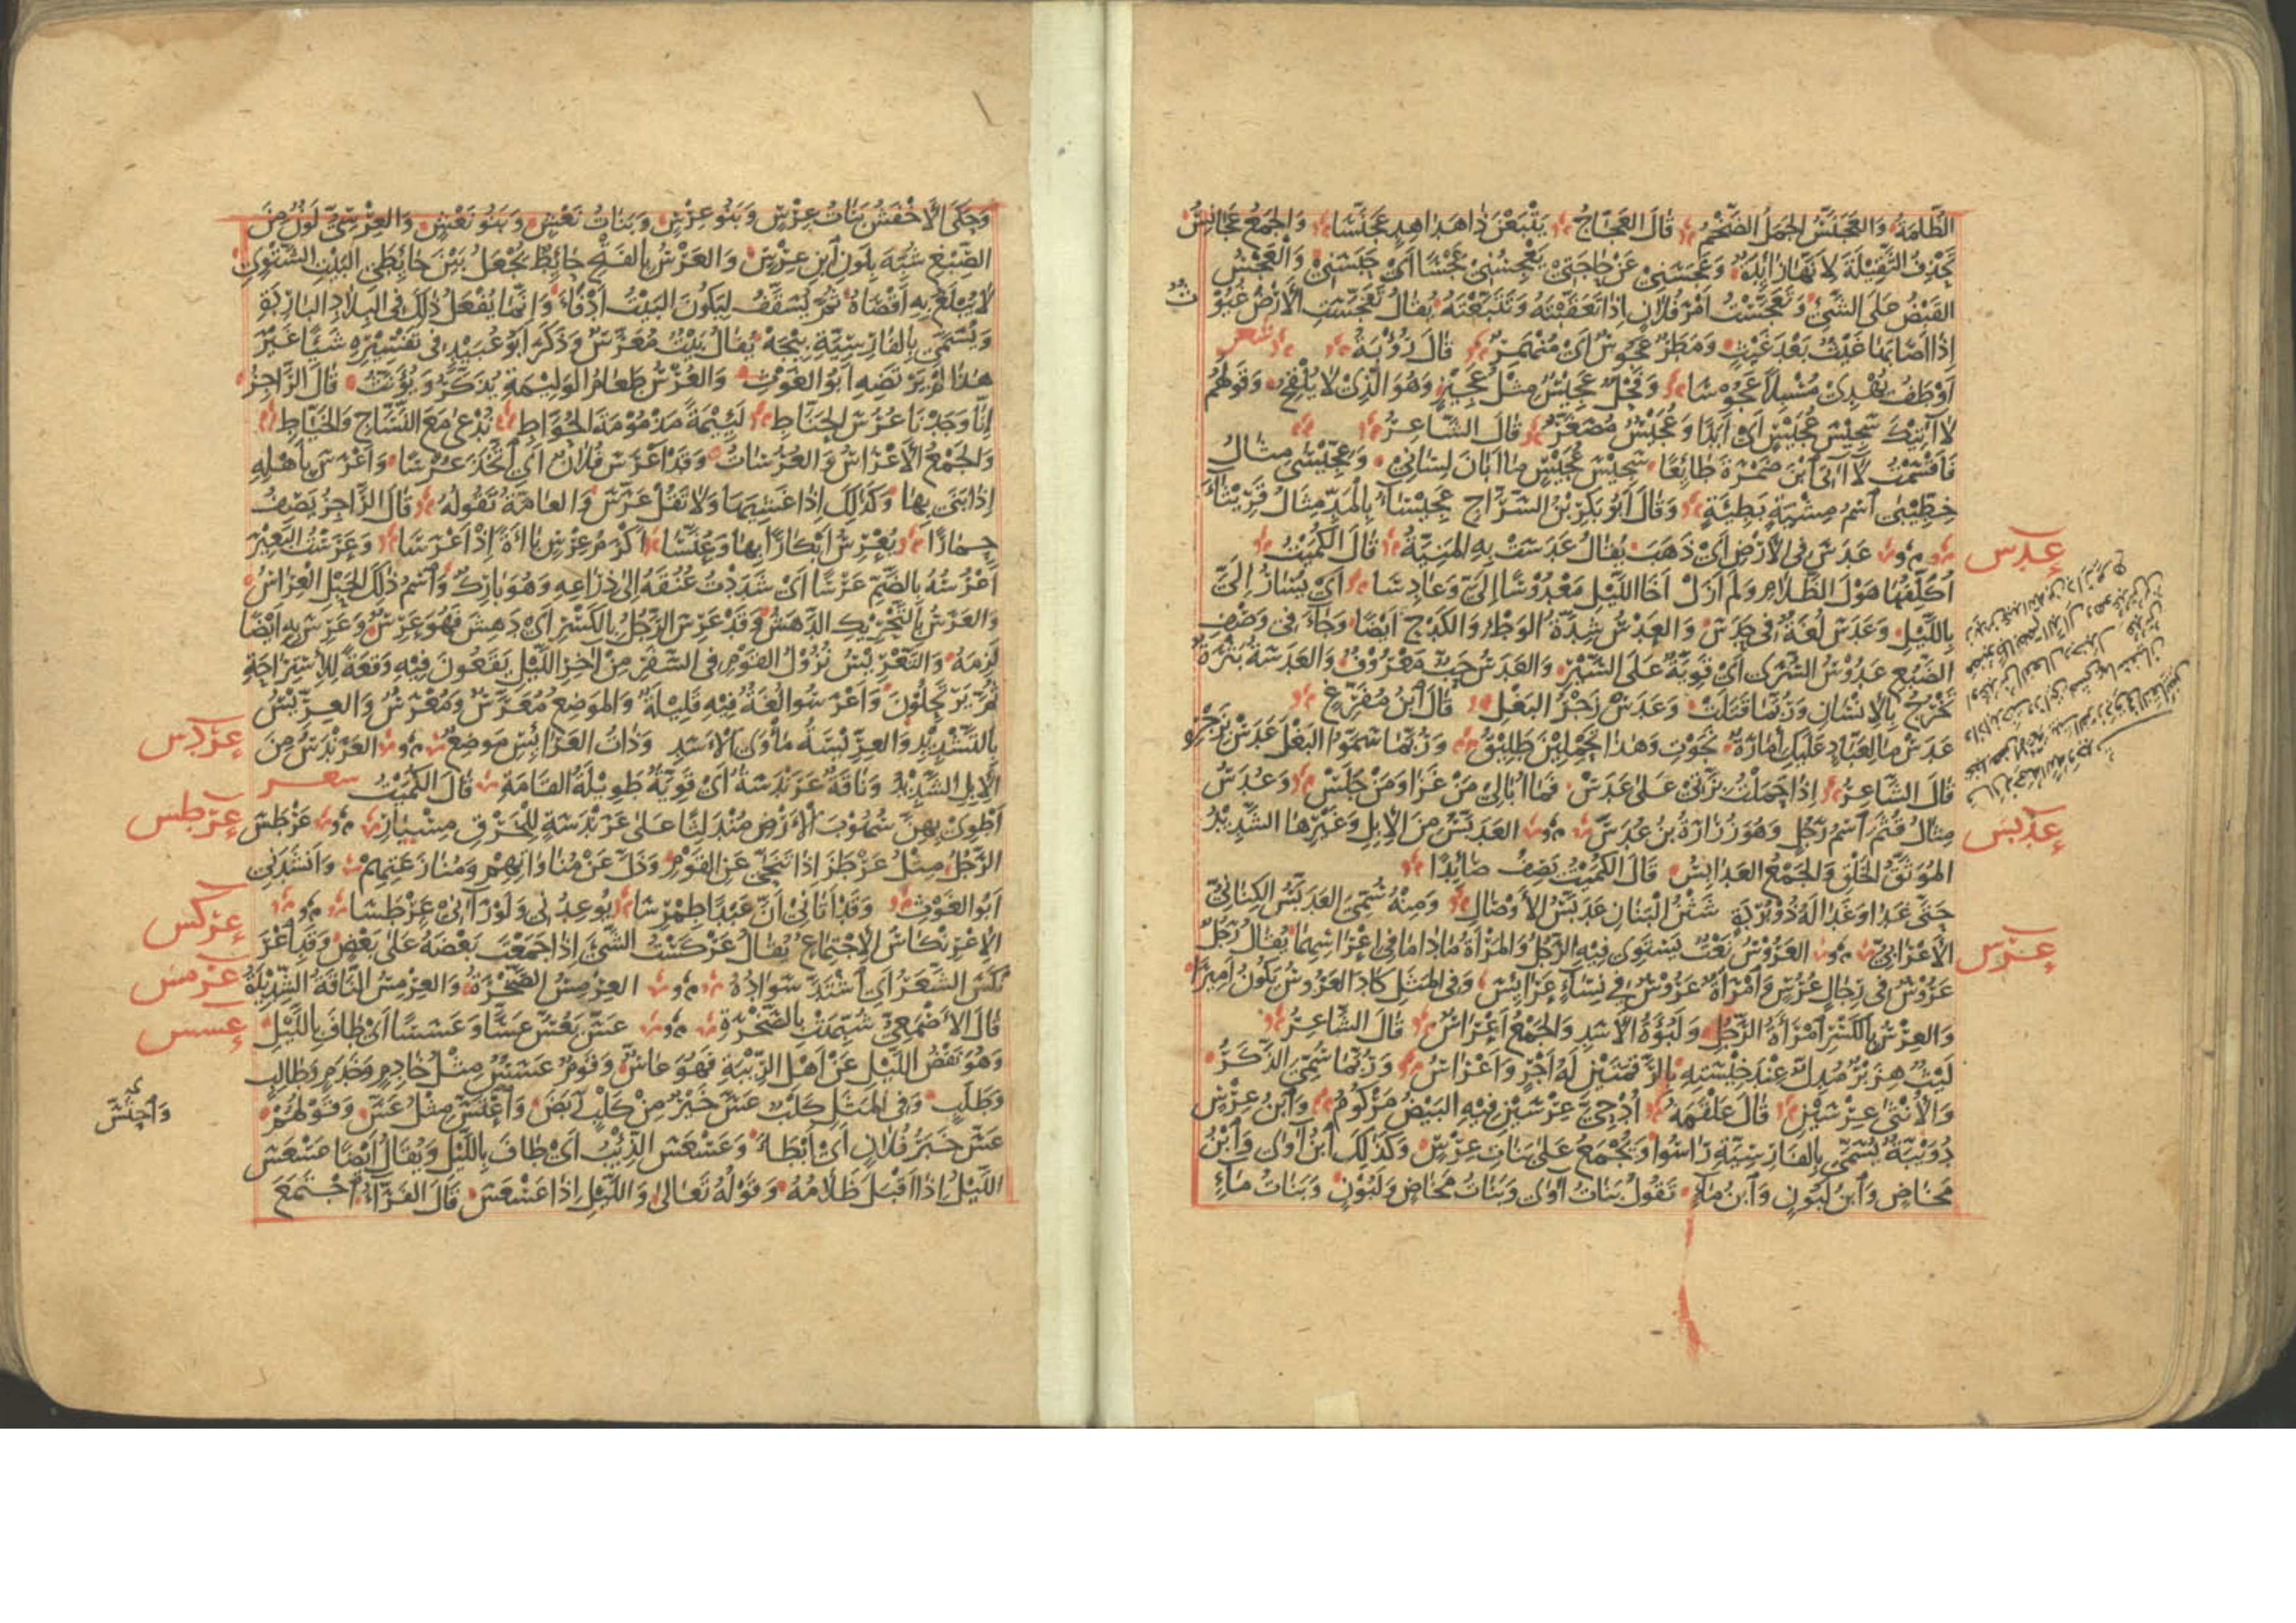 الظُّلمَةُ وَالعَجَنَّسُ الجَمَلُ الضَّخْمُ قَالَ العَجَّاجُ يَتْبَعْنَ ذَا هَدَاهِدٍ عَجَنَّسَا وَالجَمْعُ عَجَانِسُ
بِحَذْفِ الثَّقِيلَةِ لِأَنَّهَا زَائِدَةٌ وَعَجَسَنِي عَنْ حَاجَتِي يَعْجِسُنِي عَجْسًا أَيْ حَبَسَنِي وَالْعَجْسُ
القَبْضُ عَلَى الشَّيْءِ وَتَعَجَّسْتُ أَمْرَ فُلَانٍ إِذَا تَعَقَّبْتَهُ وَتَتَبَّعْتَهُ يُقَالُ تَعَجَّسَتِ الأَرْضَ غُيُوْ
إِذَا أَصَابَهَا غَيْثٌ بَعْدَ غَيْثٍ وَمَطَرٌ عَجُوسٌ أَيْ مُنْهَمِرٌ قَالَ رُؤْبَةُ شعر
أَوْطَفَ يَهْدِي مُسْبِلًا عَجُوسَا وَفَحْلٌ عَجِيسٌ مِثْلُ عَجِيزٍ وَهُوَ الَّذِي لَا يُلْقِحُ وَقَوْلُهُمْ
لَا آتِيكَ سَجِيسَ عُجَيْسٍ أَيْ أَبَدًا وَعُجَيْسٌ مُصَغَّرٌ قَالَ الشَّاعِرُ
فَأَقْسَمْتُ لَا آتِي ابْنَ ضَمْرَةَ طَائِعًا سَجِيسَ عُجَيْسٍ مَا أَبَانَ لِسَانِي وَعِجِّيسَى مِثَالُ
خِطِّيبَى اسْمُ مِشْيَةٍ بَطِيئَةٍ وَقَالَ أَبُو بَكْرِ بْنُ السَّرَّاجِ عَجِيسَاءُ بِالْمَدِّ مِثَالُ قَرِيثَاءَ
عَدَسَ فِي الْأَرْضِ أَيْ ذَهَبَ يُقَالُ عَدَسَتْ بِهِ الْمَنِيَّةُ قَالَ الْكُمَيْتُ
أُكَلِّفُهَا هَوْلَ الظَّلَامِ وَلَمْ أَزَلْ أَخَا اللَّيْلِ مَعْدُوسًا إِلَيَّ وَعَادِسَا أَيْ يُسَارُ إِلَيَّ
بِاللَّيْلِ وَعَدَسَ لُغَةٌ فِي حَدَسَ وَالعَدْسُ شِدَّةُ الوَطْءِ وَالكَدْحُ أَيْضًا وَجَاءَ فِي وَصْفِ
الضَّبُعِ عَدُوسُ السُّرَى أَيْ قَوِيَّةٌ عَلَى السَّيْرِ وَالعَدَسُ حَبٌّ مَعْرُوفٌ وَالعَدَسَةُ بَثْرَةٌ
تَخْرُجُ بِالْإِنْسَانِ وَرُبَّمَا قَتَلَتْ وَعَدَسْ زَجْرُ البَغْلِ قَالَ ابْنُ مُفَرِّغٍ
عَدَسْ مَا لِعَبَّادٍ عَلَيْكِ إِمَارَةٌ نَجَوْتِ وَهَذَا تَحْمِلِينَ طَلِيقُ وَرُبَّمَا سَمَّوُا البَغْلَ عَدَسْ بِزَجْرِهِ
قَالَ الشَّاعِرُ إِذَا حَمَلْتُ بِزَّتِي عَلَى عَدَسْ فَمَا أُبَالِي مَنْ غَزَا وَمَنْ جَلَسْ وَعُدَسُ
مِثَالُ قُثَمَ اسْمُ رَجُلٍ وَهُوَ زُرَارَةُ بْنُ عُدَسَ العَدَبَّسُ مِنَ الْإِبِلِ وَغَيْرِهَا الشَّدِيدُ
المُوَثَّقُ الخَلْقِ وَالجَمْعُ العَدَابِسُ قَالَ الكُمَيْتُ يَصِفُ صَائِدًا
حَتَّى غَدَا وَغَدَا لَهُ ذُو بُرْدَةٍ شَثْنُ الْبَنَانِ عَدَبَّسُ الْأَوْصَالِ وَمِنْهُ سُمِّيَ العَدَبَّسُ الكِنَانِيُّ
الأَعْرَابِيُّ العَرُوسُ نَعْتٌ يَسْتَوِي فِيهِ الرَّجُلُ وَالمَرْأَةُ مَا دَامَا فِي إِعْرَاسِهِمَا يُقَالُ رَجُلٌ
عَرُوسٌ فِي رِجَالٍ عُرُسٍ وَامْرَأَةٌ عَرُوسٌ فِي نِسَاءٍ عَرَائِسَ وَفِي المَثَلِ كَادَ العَرُوسُ يَكُونُ أَمِيرًا
وَالعِرْسُ بِالكَسْرِ امْرَأَةُ الرَّجُلِ وَلَبُؤَةُ الْأَسَدِ وَالجَمْعُ أَعْرَاسٌ قَالَ الشَّاعِرُ
لَيْثٌ هِزَبْرٌ مُدِلٌّ عِنْدَ خِيسَتِهِ بِالرَّقْمَتَيْنِ لَهُ أَجْرٍ وَأَعْرَاسُ وَرُبَّمَا سُمِّيَ الذَّكَرُ
وَالْأُنْثَى عِرْسَيْنِ قَالَ عَلْقَمَةُ أُدْحِيَّ عِرْسَيْنِ فِيهِ البَيْضُ مَرْكُومُ وَابْنُ عِرْسٍ
دُوَيْبَةٌ تُسَمَّى بِالفَارِسِيَّةِ رَاسُو وَتُجْمَعُ عَلَى بَنَاتِ عِرْسٍ وَكَذَلِكَ ابْنُ آوَى وَابْنُ
مَخَاضٍ وَابْنُ لَبُونٍ وَابْنُ مَاءٍ تَقُولُ بَنَاتُ آوَى وَبَنَاتُ مَخَاضٍ وَلَبُونٍ وَبَنَاتُ مَاءٍ
عدس
عدبس
عرس
وَحَكَى الْأَخْفَشُ بَنَاتُ عِرْسٍ وَبَنُو عِرْسٍ وَبَنَاتُ نَعْشٍ وَبَنُو نَعْشٍ وَالعِرْسِيُّ لَوْنٌ مِنَ
الصِّبْغِ شُبِّهَ بِلَوْنِ ابْنِ عِرْسٍ وَالعَرْسُ بِالفَتْحِ حَائِطٌ يُجْعَلُ بَيْنَ حَائِطَيِ البَيْتِ الشَّتْوِيِّ
لَا يُبْلَغُ بِهِ أَقْصَاهُ ثُمَّ يُسَقَّفُ لِيَكُونَ البَيْتُ أَدْفَأَ وَإِنَّمَا يُفْعَلُ ذَلِكَ فِي البِلَادِ البَارِدَةِ
وَيُسَمَّى بِالفَارِسِيَّةِ بِيجَهْ يُقَالُ بَيْتٌ مُعَرَّسٌ وَذَكَرَ أَبُو عُبَيْدٍ فِي تَفْسِيرِهِ شَيْئًا غَيْرَ
هَذَا لَمْ يَرْتَضِهِ أَبُو الغَوْثِ وَالعُرْسُ طَعَامُ الوَلِيمَةِ يُذَكَّرُ وَيُؤَنَّثُ قَالَ الرَّاجِزُ
إِنَّا وَجَدْنَا عُرُسَ الحَنَّاطِ لَئِيمَةً مَذْمُومَةَ الحُوَّاطِ نُدْعَى مَعَ النَّسَّاجِ وَالخَيَّاطِ
وَالجَمْعُ الْأَعْرَاسُ وَالعُرُسَاتُ وَقَدْ أَعْرَسَ فُلَانٌ أَيِ اتَّخَذَ عُرْسًا وَأَعْرَسَ بِأَهْلِهِ
إِذَا بَنَى بِهَا وَكَذَلِكَ إِذَا غَشِيَهَا وَلَا تَقُلْ عَرَّسَ وَالعَامَّةُ تَقُولُهُ قَالَ الرَّاجِزُ يَصِفُ
حِمَارًا يُعْرِسُ أَبْكَارًا بِهَا وَعُنَّسَا أَكْرَمُ عِرْسٍ بَاءَةً إِذْ أَعْرَسَا وَعَرَسْتُ البَعِيرَ
أَعْرُسُهُ بِالضَّمِّ عَرْسًا أَيْ شَدَدْتُ عُنُقَهُ إِلَى ذِرَاعِهِ وَهُوَ بَارِكٌ وَاسْمُ ذَلِكَ الحَبْلِ العِرَاسُ
وَالعَرَسُ بِالتَّحْرِيكِ الدَّهَشُ وَقَدْ عَرِسَ الرَّجُلُ بِالكَسْرِ أَيْ دَهِشَ فَهُوَ عَرِسٌ وَعَرِسَ بِهِ أَيْضًا
لَزِمَهُ وَالتَّعْرِيسُ نُزُولُ القَوْمِ فِي السَّفَرِ مِنْ آخِرِ اللَّيْلِ يَقَعُونَ فِيهِ وَقْعَةً لِلِاسْتِرَاحَةِ
ثُمَّ يَرْتَحِلُونَ وَأَعْرَسُوا لُغَةٌ فِيهِ قَلِيلَةٌ وَالمَوْضِعُ مُعَرَّسٌ وَمُعْرَسٌ وَالعِرِّيسُ
بِالتَّشْدِيدِ وَالعِرِّيسَةُ مَأْوَى الْأَسَدِ وَذَاتُ العَرَائِسِ مَوْضِعٌ العَرَنْدَسُ مِنَ
الْإِبِلِ الشَّدِيدُ وَنَاقَةٌ عَرَنْدَسَةٌ أَيْ قَوِيَّةٌ طَوِيلَةُ القَامَةِ قَالَ الكُمَيْتُ شعر
أَطْوِي بِهِنَّ سُهُوبَ الْأَرْضِ مُنْدَلِثًا عَلَى عَرَنْدَسَةٍ لِلْخَرْقِ مِسْبَارِ عَرْطَسَ
الرَّجُلُ مِثْلُ عَرْطَزَ إِذَا تَنَحَّى عَنِ القَوْمِ وَذَلَّ عَنْ مُنَاوَاتِهِمْ وَمُنَازَعَتِهِمْ وَأَنْشَدَنِي
أَبُو الغَوْثِ وَقَدْ أَتَانِي أَنَّ عَبْدًا طِمْرِسَا يُوعِدُنِي وَلَوْ رَآنِي عَرْطَسَا
الِاعْرِنْكَاسُ الِاجْتِمَاعُ يُقَالُ عَرْكَسْتُ الشَّيْءَ إِذَا جَمَعْتَ بَعْضَهُ عَلَى بَعْضٍ وَقَدِ اعْرَ
نْكَسَ الشَّعَرُ أَيِ اشْتَدَّ سَوَادُهُ العِرْمِسُ الصَّخْرَةُ وَالعِرْمِسُ النَّاقَةُ الشَّدِيدَةُ
قَالَ الأَصْمَعِيُّ شُبِّهَتْ بِالصَّخْرَةِ عَسَّ يَعُسُّ عَسًّا وَعَسَسًا أَيْ طَافَ بِاللَّيْلِ
وَهُوَ نَفْضُ اللَّيْلِ عَنْ أَهْلِ الرِّيبَةِ فَهُوَ عَاسٌّ وَقَوْمٌ عَسَسٌ مِثْلُ خَادِمٍ وَخَدَمٍ وَطَالِبٍ
وَطَلَبٍ وَفِي المَثَلِ كَلْبٌ عَسَّ خَيْرٌ مِنْ كَلْبٍ رَبَضَ وَاعْتَسَّ مِثْلُ عَسَّ وَقَوْلُهُمْ
عَسَّ خَبَرُ فُلَانٍ أَيْ أَبْطَأَ وَعَسْعَسَ الذِّئْبُ أَيْ طَافَ بِاللَّيْلِ وَيُقَالُ أَيْضًا عَسْعَسَ
اللَّيْلُ إِذَا أَقْبَلَ ظَلَامُهُ وَقَوْلُهُ تَعَالَى وَاللَّيْلِ إِذَا عَسْعَسَ قَالَ الفَرَّاءُ اجْتَمَعَ
عردس
عرطس
عركس
عرمس
عسس